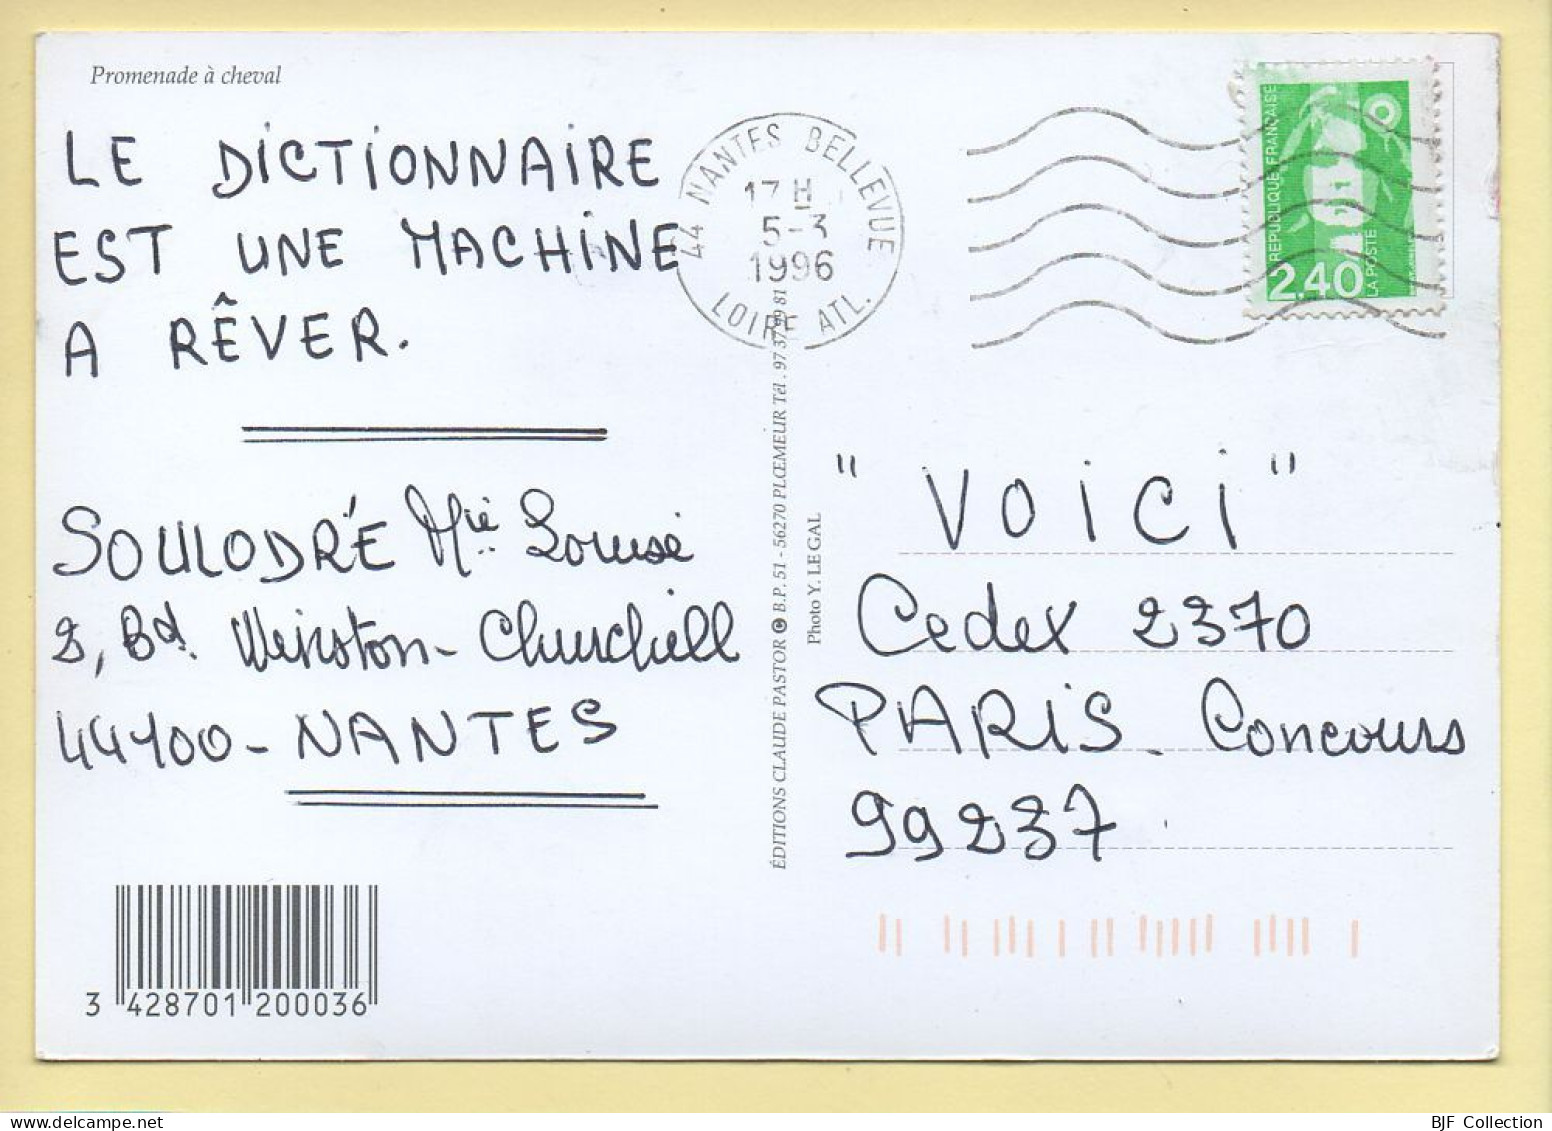 Promenade à cheval
LE DICTIONNAIRE
EST UNE MACHINE
A RÊVER.
SOULODRÉ Mie Louise
2, Bd. Winston-Churchill
44100-NANTES
3 428701 200036
44 NANTES BELLEVUE
17 H
5-3
1996
LOIRE ATL.
ÉDITIONS CLAUDE PASTOR © B.P. 51 - 56270 PLŒMEUR Tél. 97 37 81
Photo Y. LE GAL
REPUBLIQUE FRANÇAISE
2,40
LA POSTE
"VOICI"
Cedex 2370
PARIS - Concours
99237
BJF Collection